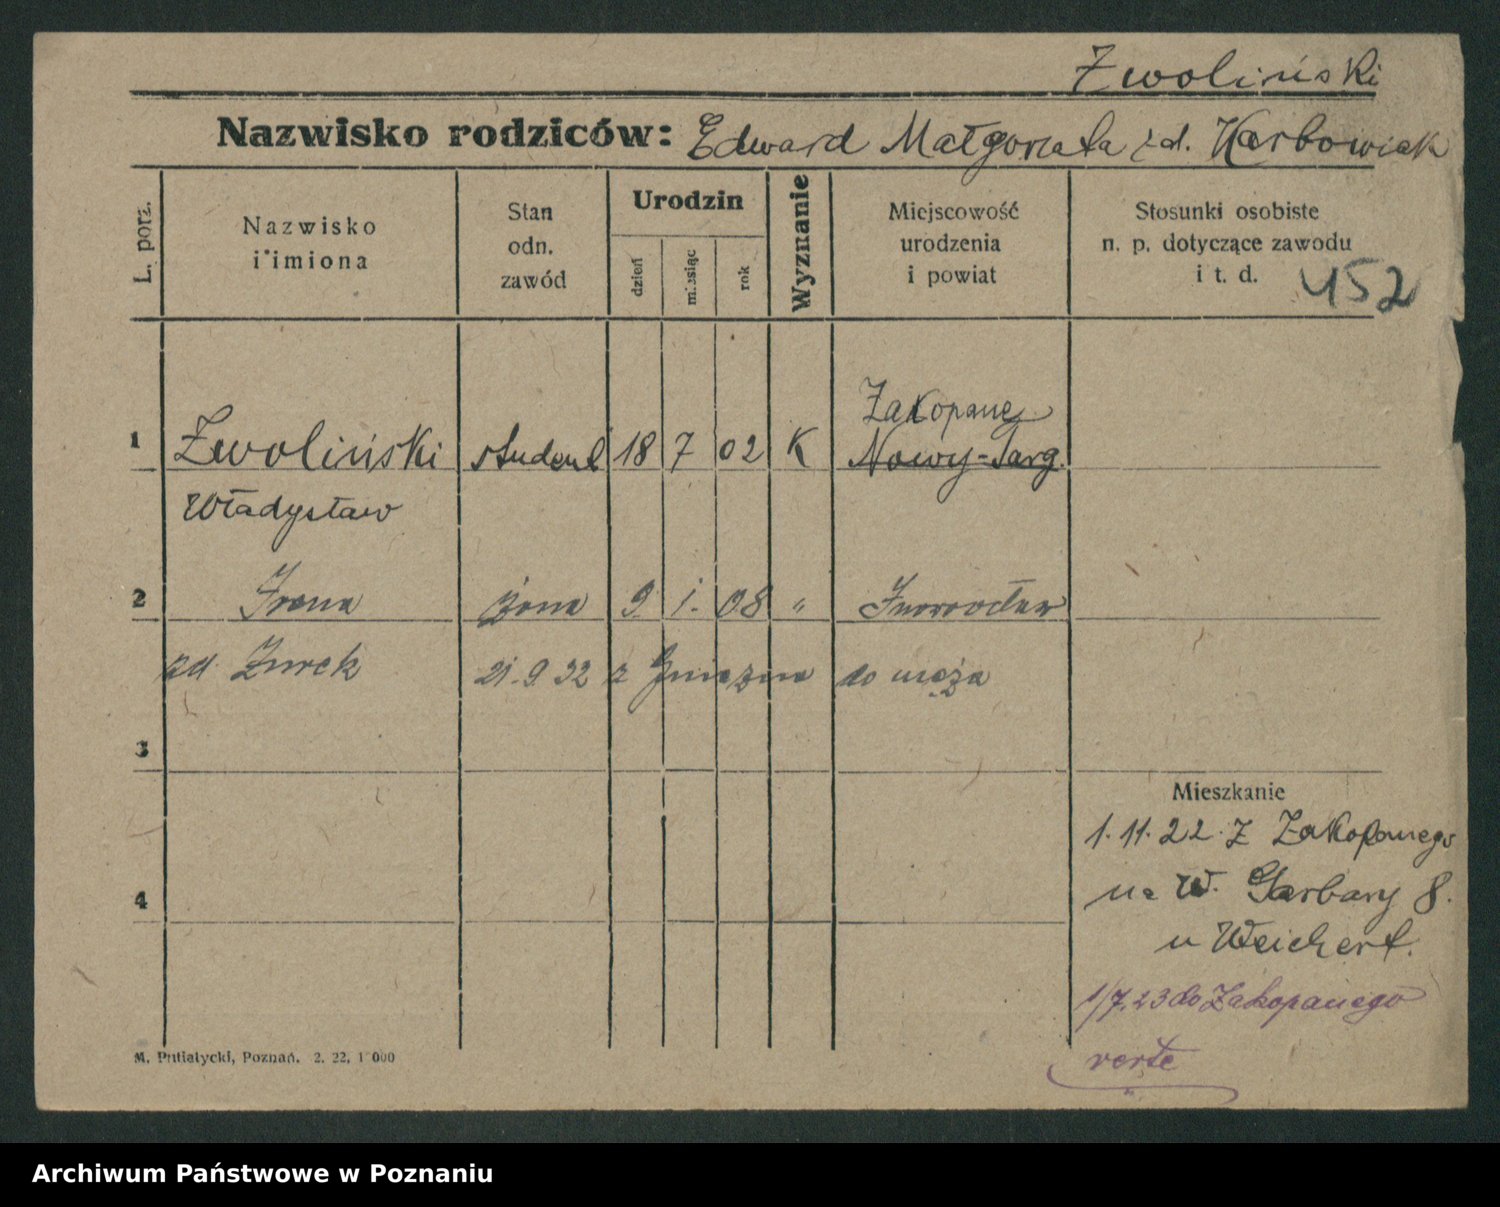 Zwoliński
Nazwisko rodziców: Edward Małgorzata zd. Karbowiak
L. porz.
Nazwisko
i imiona
Stan
odn.
zawód
Urodzin
dzień
miesiąc
rok
Wyznanie
Miejscowość
urodzenia
i powiat
Stosunki osobiste
n. p. dotyczące zawodu
i t. d.
452
Zakopane
1 Zwoliński student 18 7 02 K Nowy-Targ.
Władysław
2 Irena żona 9. 1. 08 " Inowrocław
zd. Żurek 21.9.32 z Gniezna do męża
3
Mieszkanie
1. 11. 22. Z Zakopanego
na W. Garbary 8.
u Weichert.
4
1/7.23 do Zakopanego
verte
M. Putiatycki, Poznań. 2. 22, 1000
Archiwum Państwowe w Poznaniu